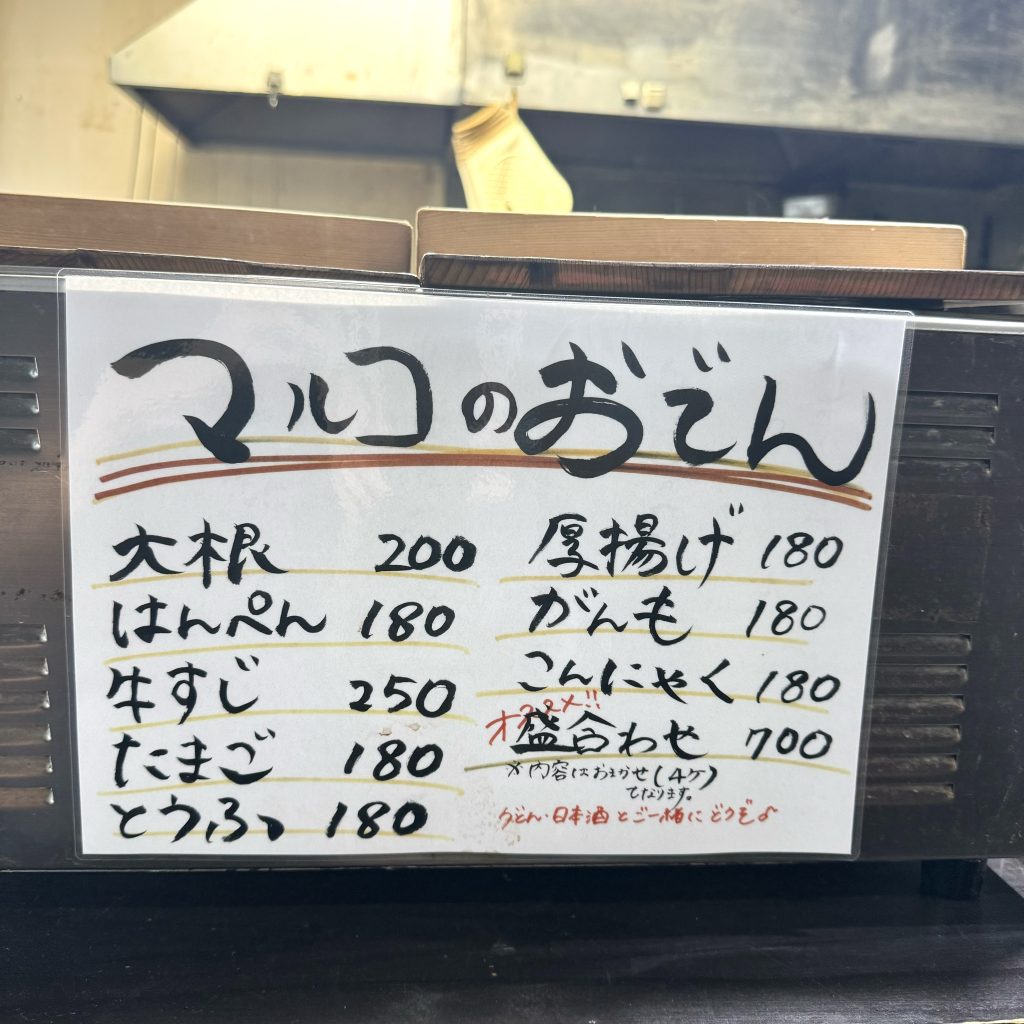 マルコのおでん
大根 200
はんぺん 180
牛すじ 250
たまご 180
とうふ 180
厚揚げ 180
がんも 180
こんにゃく 180
オススメ!!
盛合わせ 700
※内容はおまかせ(4ケ)
となります。
うどん・日本酒とご一緒にどうぞ♪